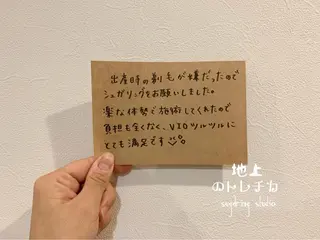 出産時の剃毛が嫌だったので
シュガリングをお願いしました。
楽な体勢で施術してくれたので
負担も全くなく、VIOツルツルに
とても満足です
地上
のトレチカ
sugaring studio